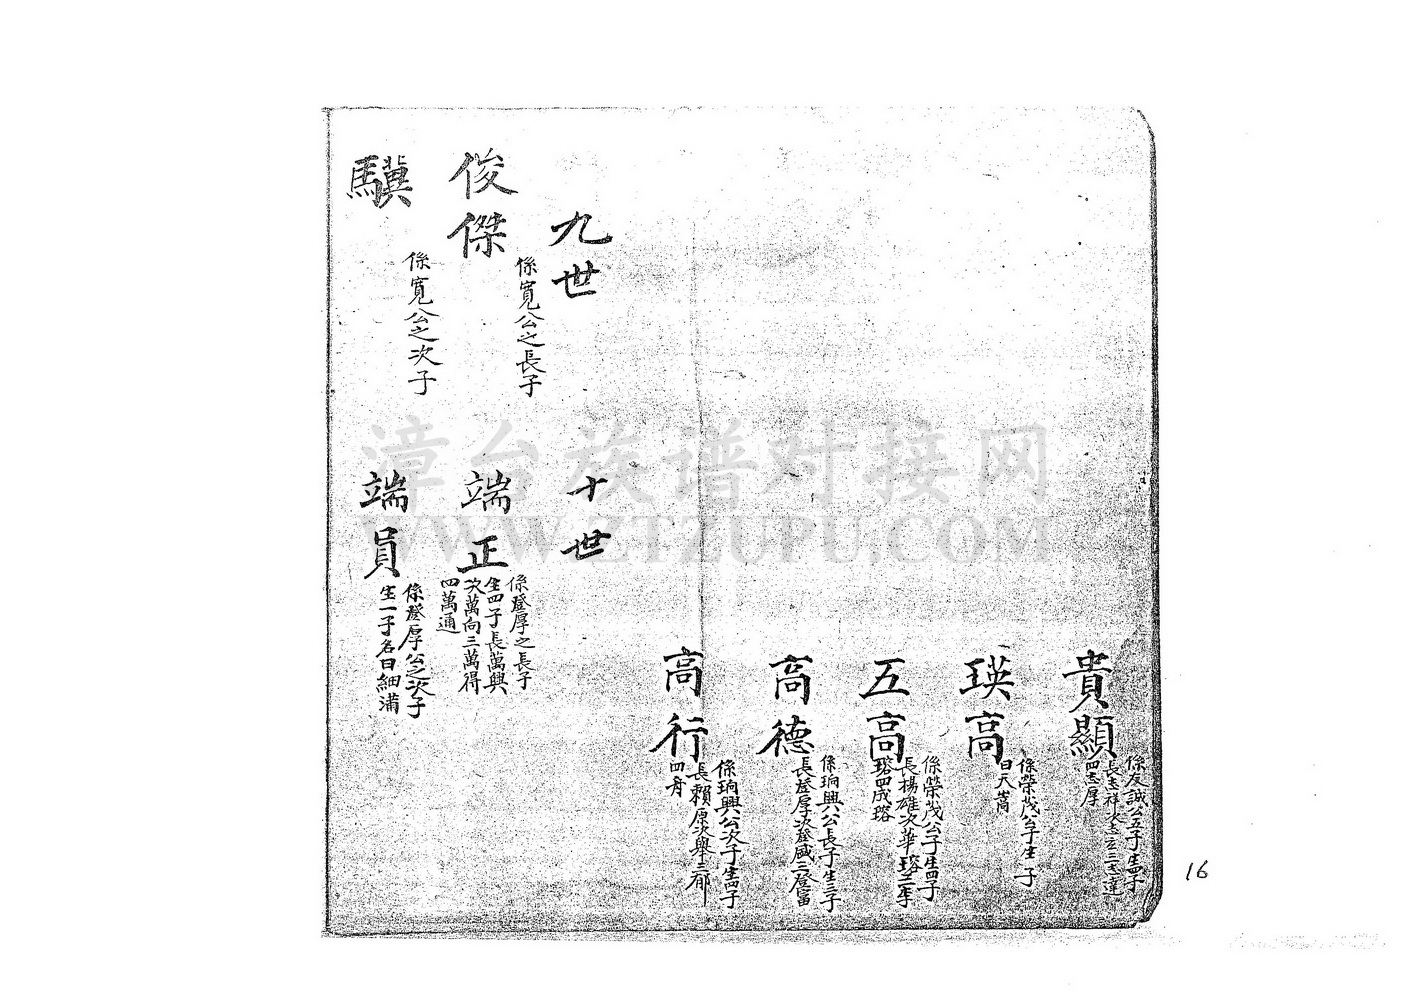 貴顯
係友誠公五子生四子
長志祥次志宏三志達
四志厚
瑛高
係榮茂公子生一子
曰天嵩
五高
係榮茂公子生四子
長楊雄次華瑢三季
瑢四成瑢
高德
係珦興公長子生三子
長登厚次登盛三登富
高行
係珦興公次子生四子
長賴原次舉三郁
四舟
九世
十世
俊傑
係寬公之長子
端正
係登厚之長子
生四子長萬興
次萬向三萬得
四萬通
驥
係寬公之次子
端員
係登厚公之次子
生一子名曰細滿
16
漳台族谱对接网
WWW.ZTZUPU.COM